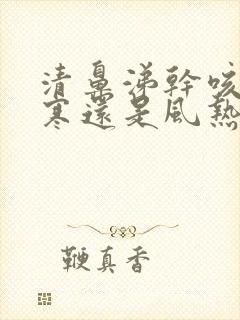 清鼻涕幹咳
寒還是風熱
鞭真香